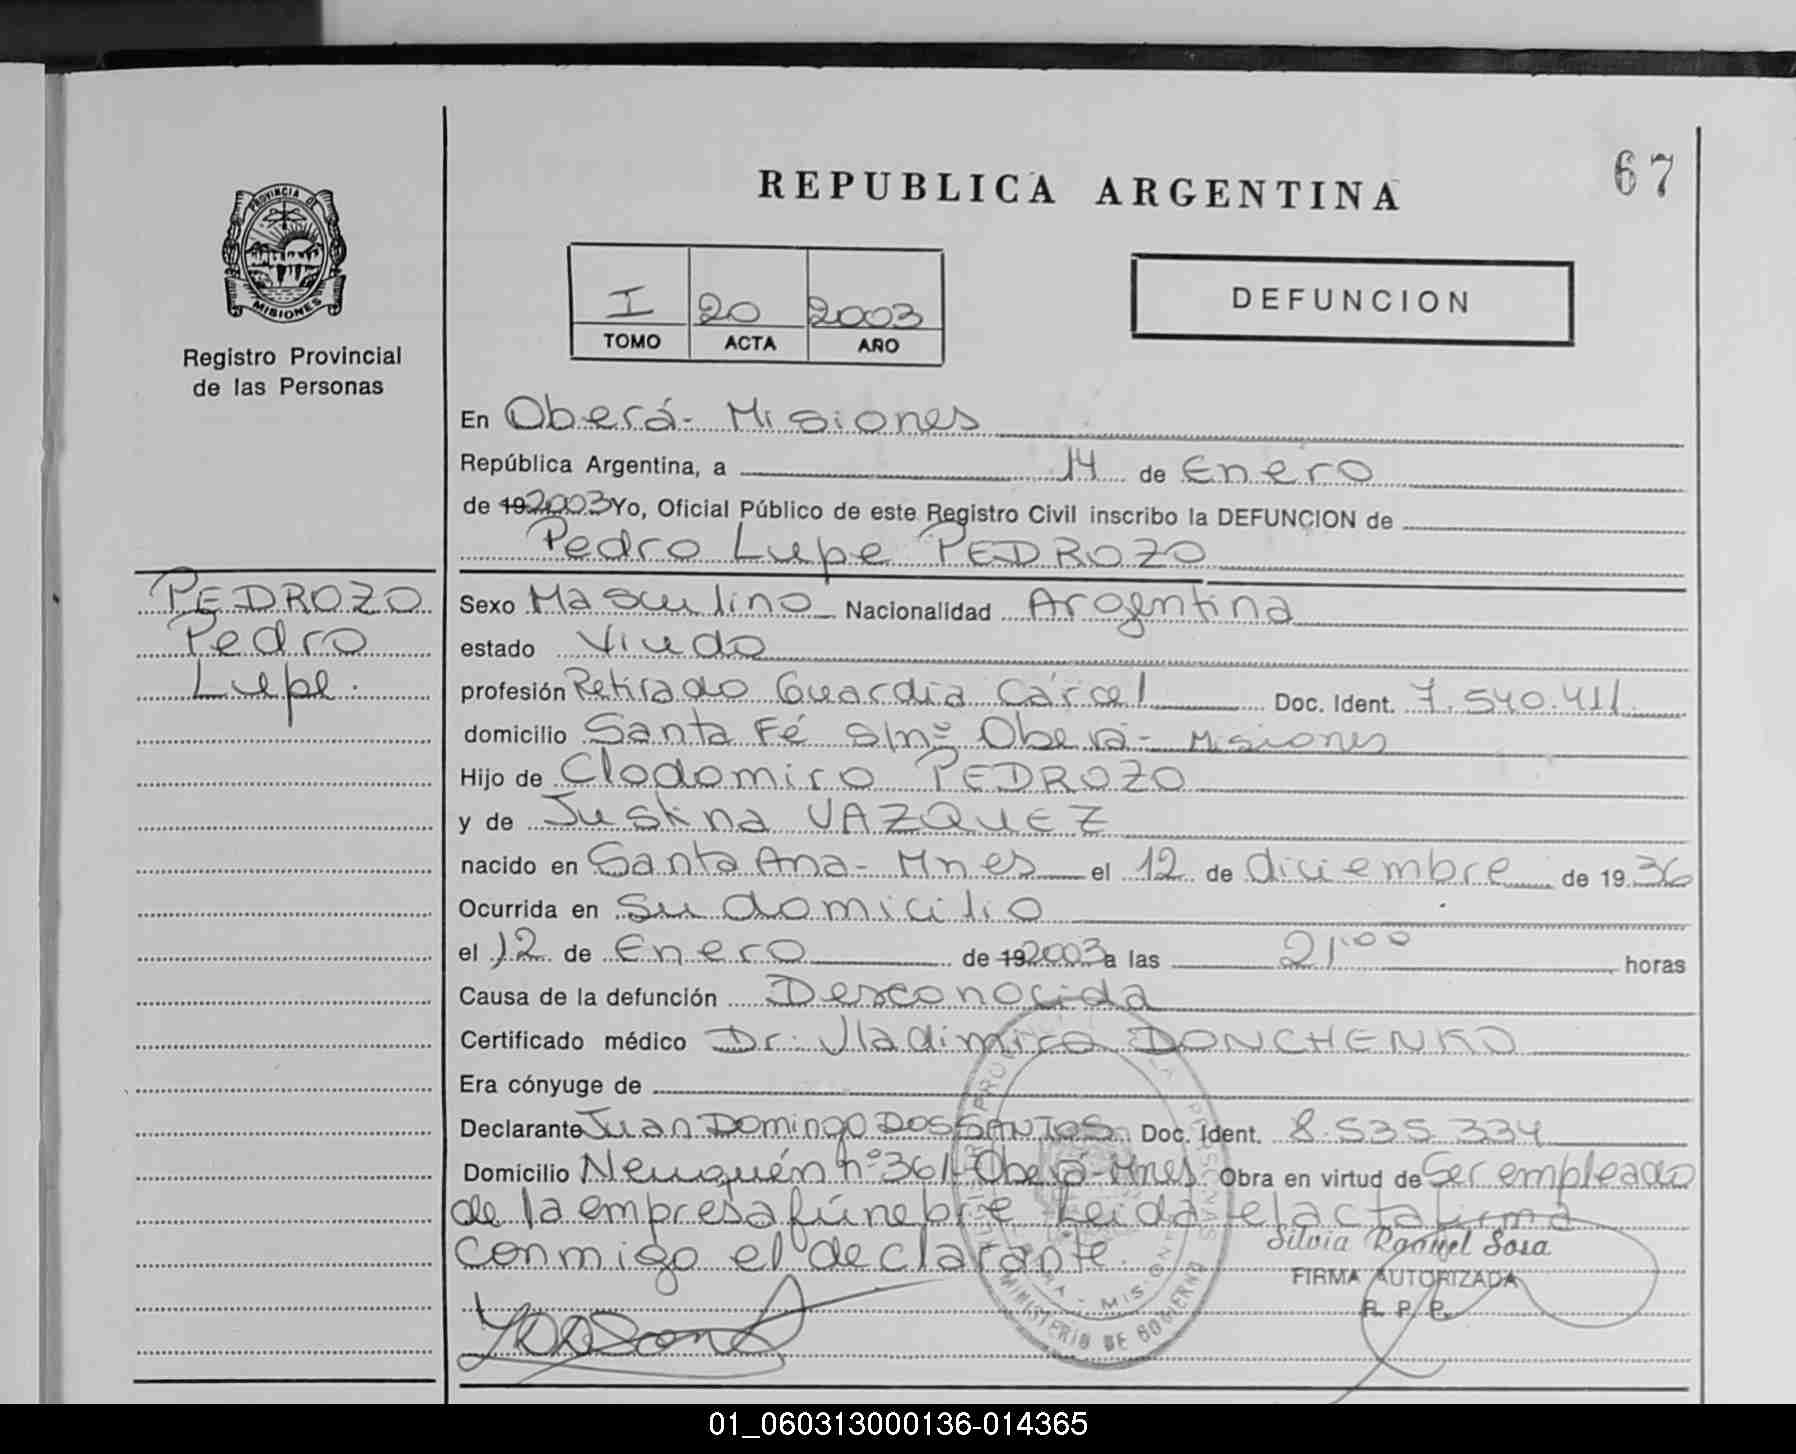 67
REPUBLICA ARGENTINA
PROVINCIA DE
MISIONES
I 20 2003
TOMO ACTA AÑO
DEFUNCION
Registro Provincial
de las Personas
En Oberá - Misiones
República Argentina, a 14 de Enero
de 19 2003 Yo, Oficial Público de este Registro Civil inscribo la DEFUNCION de
Pedro Lupe PEDROZO
PEDROZO
Pedro
Lupe.
Sexo Masculino Nacionalidad Argentina
estado Viudo
profesión Retirado Guardia Cárcel Doc. Ident. 7.540.411.
domicilio Santa Fé S/nº Oberá - Misiones
Hijo de Clodomiro PEDROZO
y de Justina VAZQUEZ
nacido en Santa Ana - Mnes el 12 de diciembre de 19 36
Ocurrida en su domicilio
el 12 de Enero de 19 2003 a las 21,00 horas
Causa de la defunción Desconocida
Certificado médico Dr. Vladimiro DONCHENKO
Era cónyuge de
Declarante Juan Domingo DOS SANTOS Doc. Ident. 8.535.334
Domicilio Neuquén nº 361 - Oberá - Mnes. Obra en virtud de Ser empleado
de la empresa fúnebre Leida el acta firma
conmigo el declarante.
Silvia Raquel Sosa
FIRMA AUTORIZADA
R. P. P.
MINISTERIO DE GOBIERNO
01_060313000136-014365